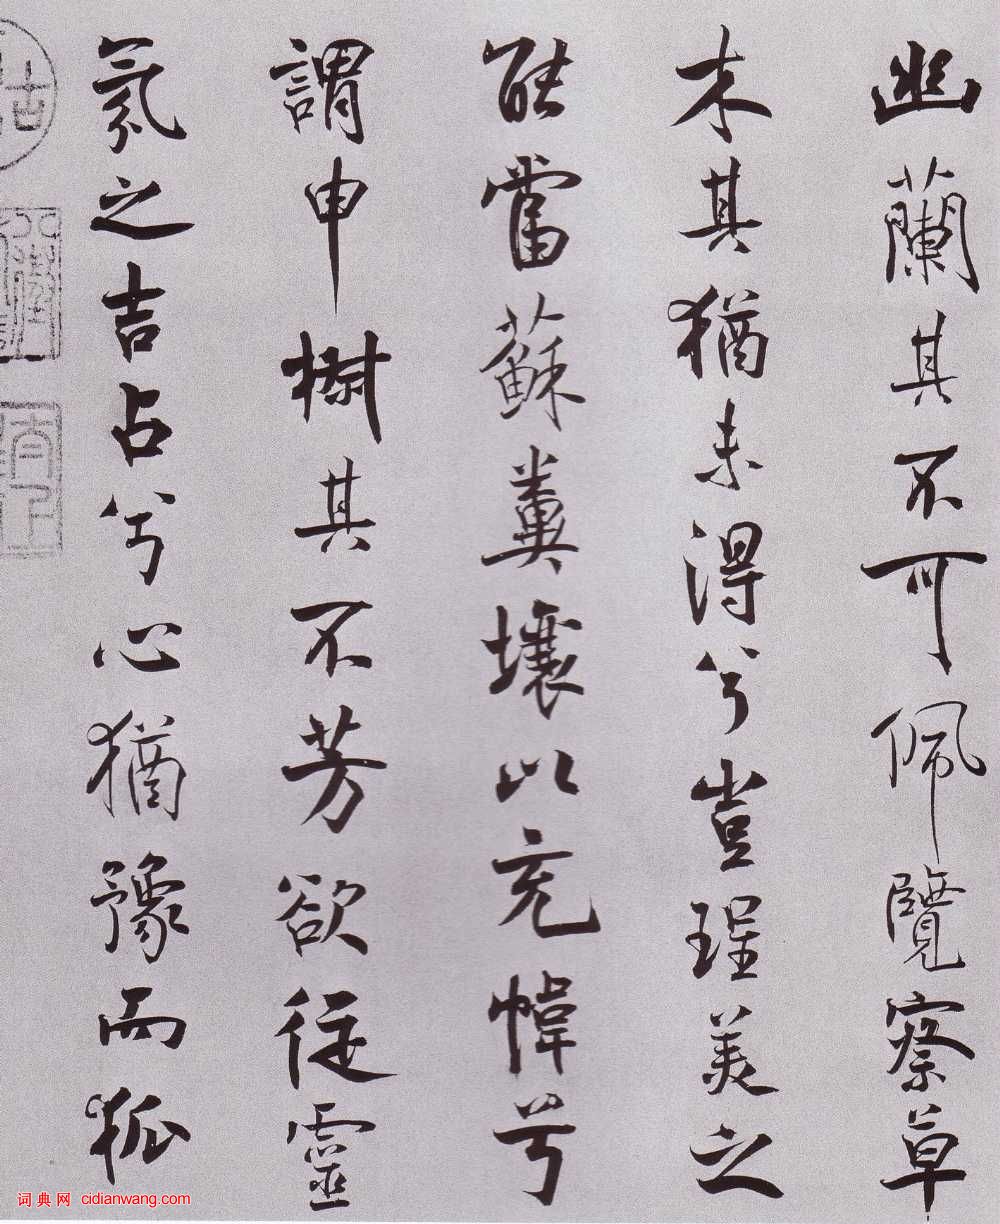 幽蘭其不可佩覽察草
木其猶未得兮豈珵美之
能當蘇糞壤以充幃兮
謂申椒其不芳欲從靈
氛之吉占兮心猶豫而狐
词典网 cidianwang.com